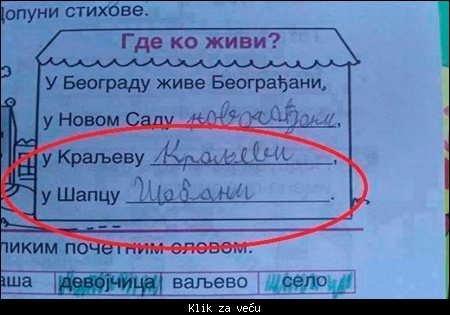 Допуни стихове.
Где ко живи?
У Београду живе Београђани,
у Новом Саду новосађани,
у Краљеву Краљеви,
у Шапцу Шабани.
ликим почетним словом.
аша девојчица ваљево село
Klik za veću